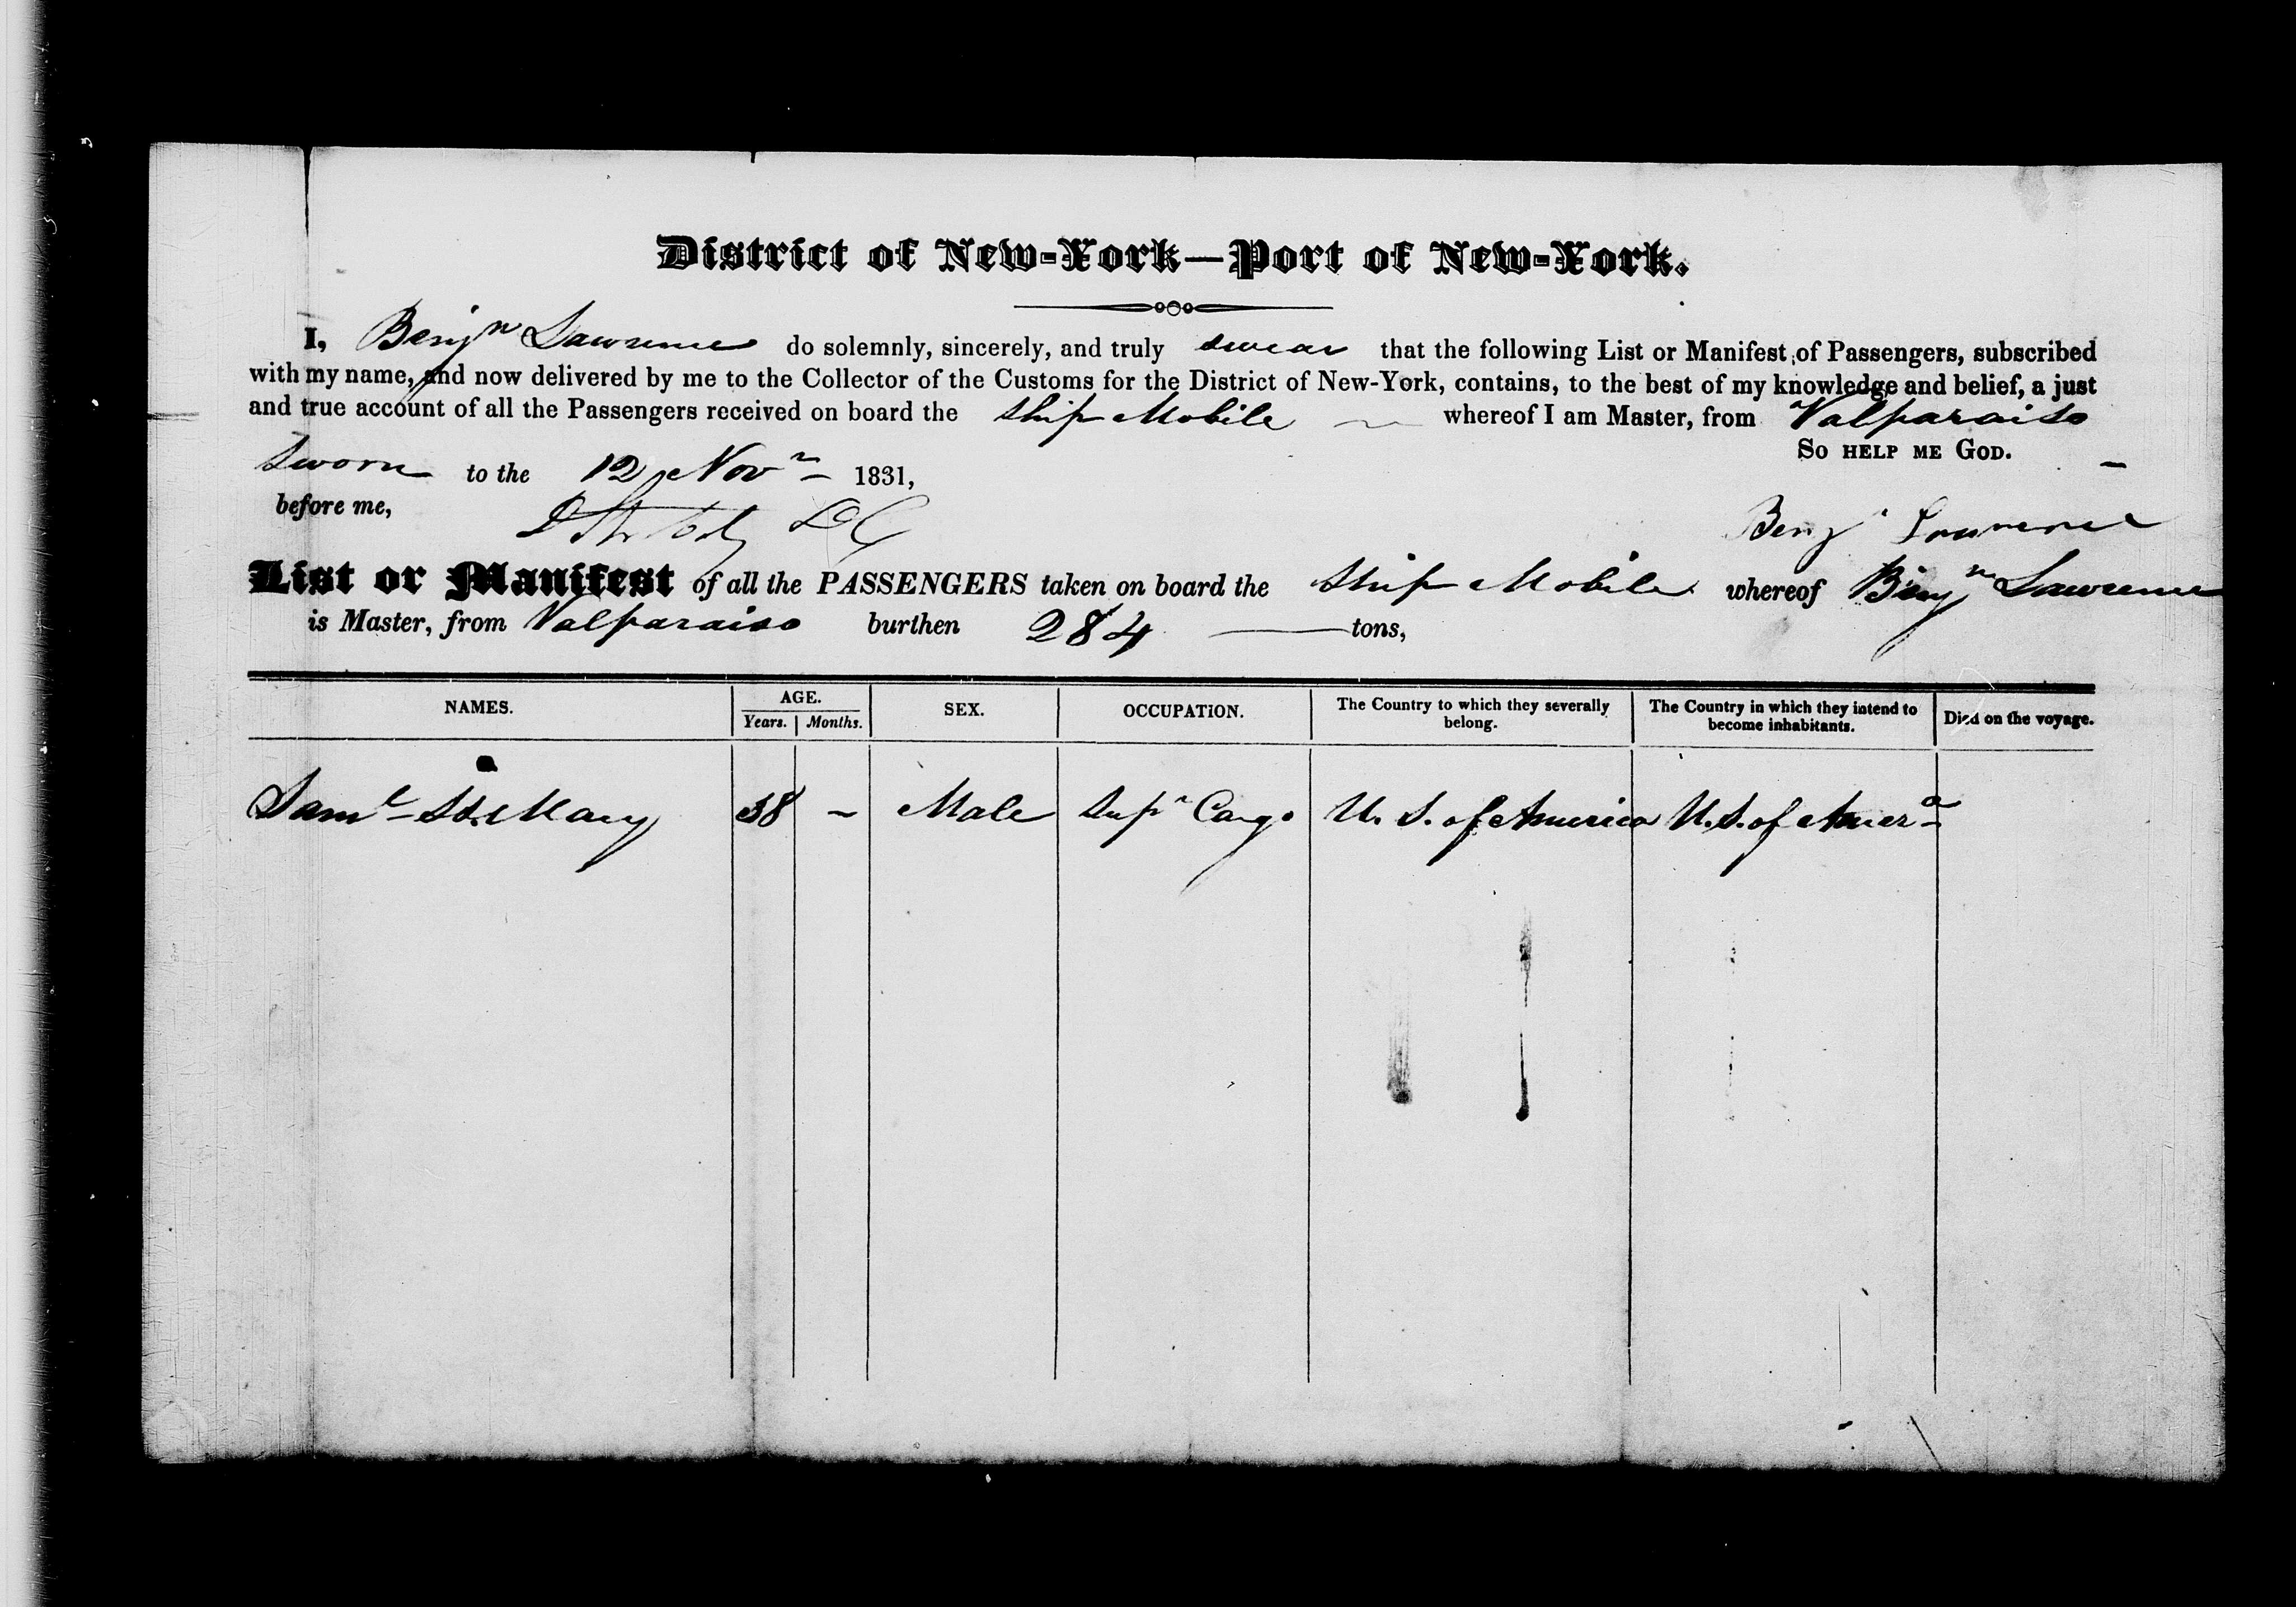 District of New-York—Port of New-York.
I, Benjn Lawrence do solemnly, sincerely, and truly swear that the following List or Manifest of Passengers, subscribed
with my name, and now delivered by me to the Collector of the Customs for the District of New-York, contains, to the best of my knowledge and belief, a just
and true account of all the Passengers received on board the Ship Mobile whereof I am Master, from Valparaiso
So help me God.
Sworn to the 12 Novr 1831,
before me, DC
Benj Lawrence
List or Manifest of all the PASSENGERS taken on board the Ship Mobile whereof Benjn Lawrence
is Master, from Valparaiso burthen 284 tons,
NAMES. AGE. SEX. OCCUPATION. The Country to which they severally belong. The Country in which they intend to become inhabitants. Died on the voyage.
Years. Months.
Saml St. Mary 38 - Male Supr Cargo U. S. of America U. S. of Amera